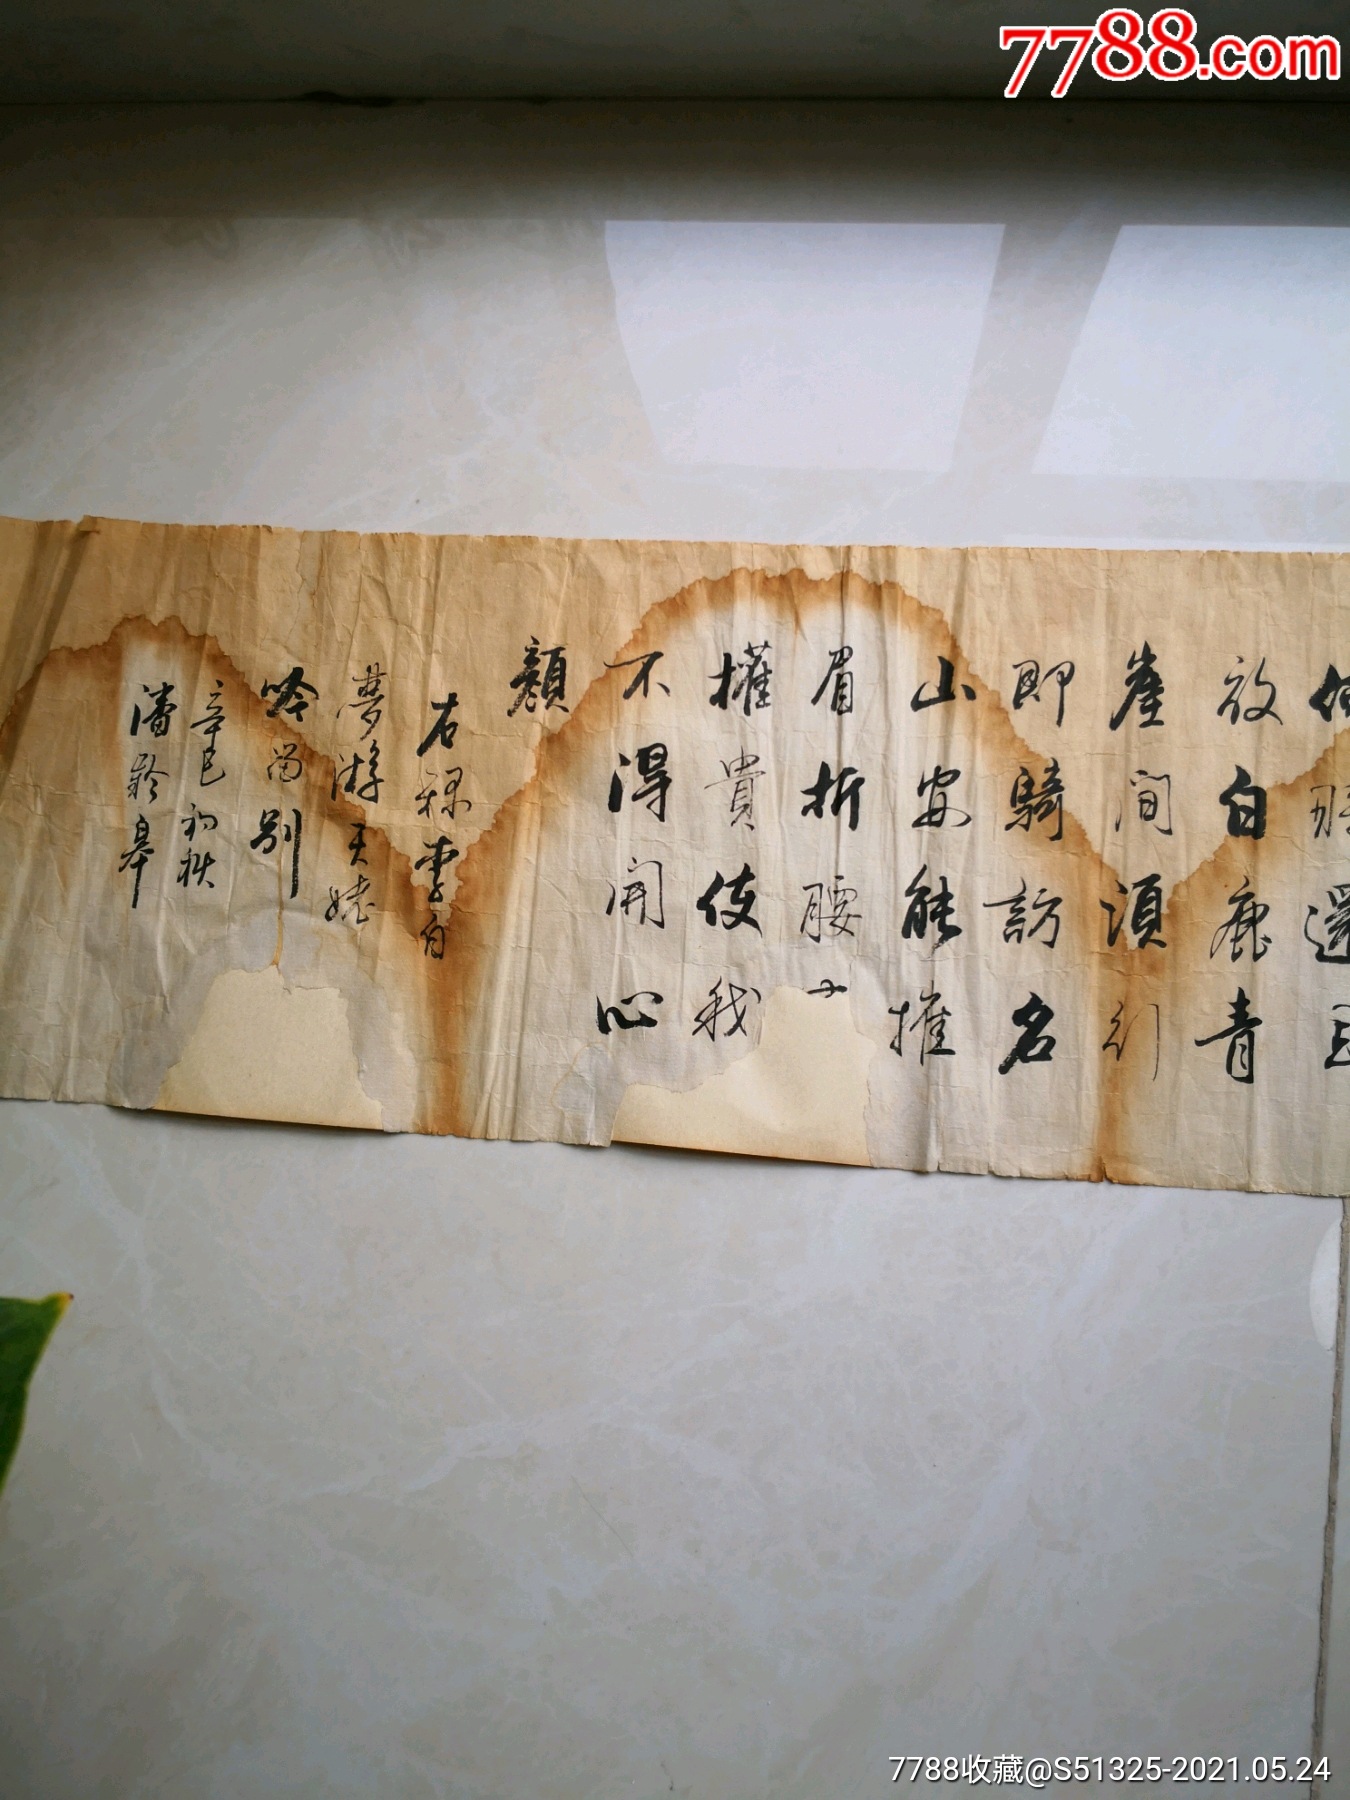 7788.com
何時還且
放白鹿青
崖間須行
即騎訪名
山安能摧
眉折腰
權貴使我
不得開心
顏
右録李白
夢游天姥
吟留別
辛巳初秋
潘齡皋
7788收藏@S51325-2021.05.24